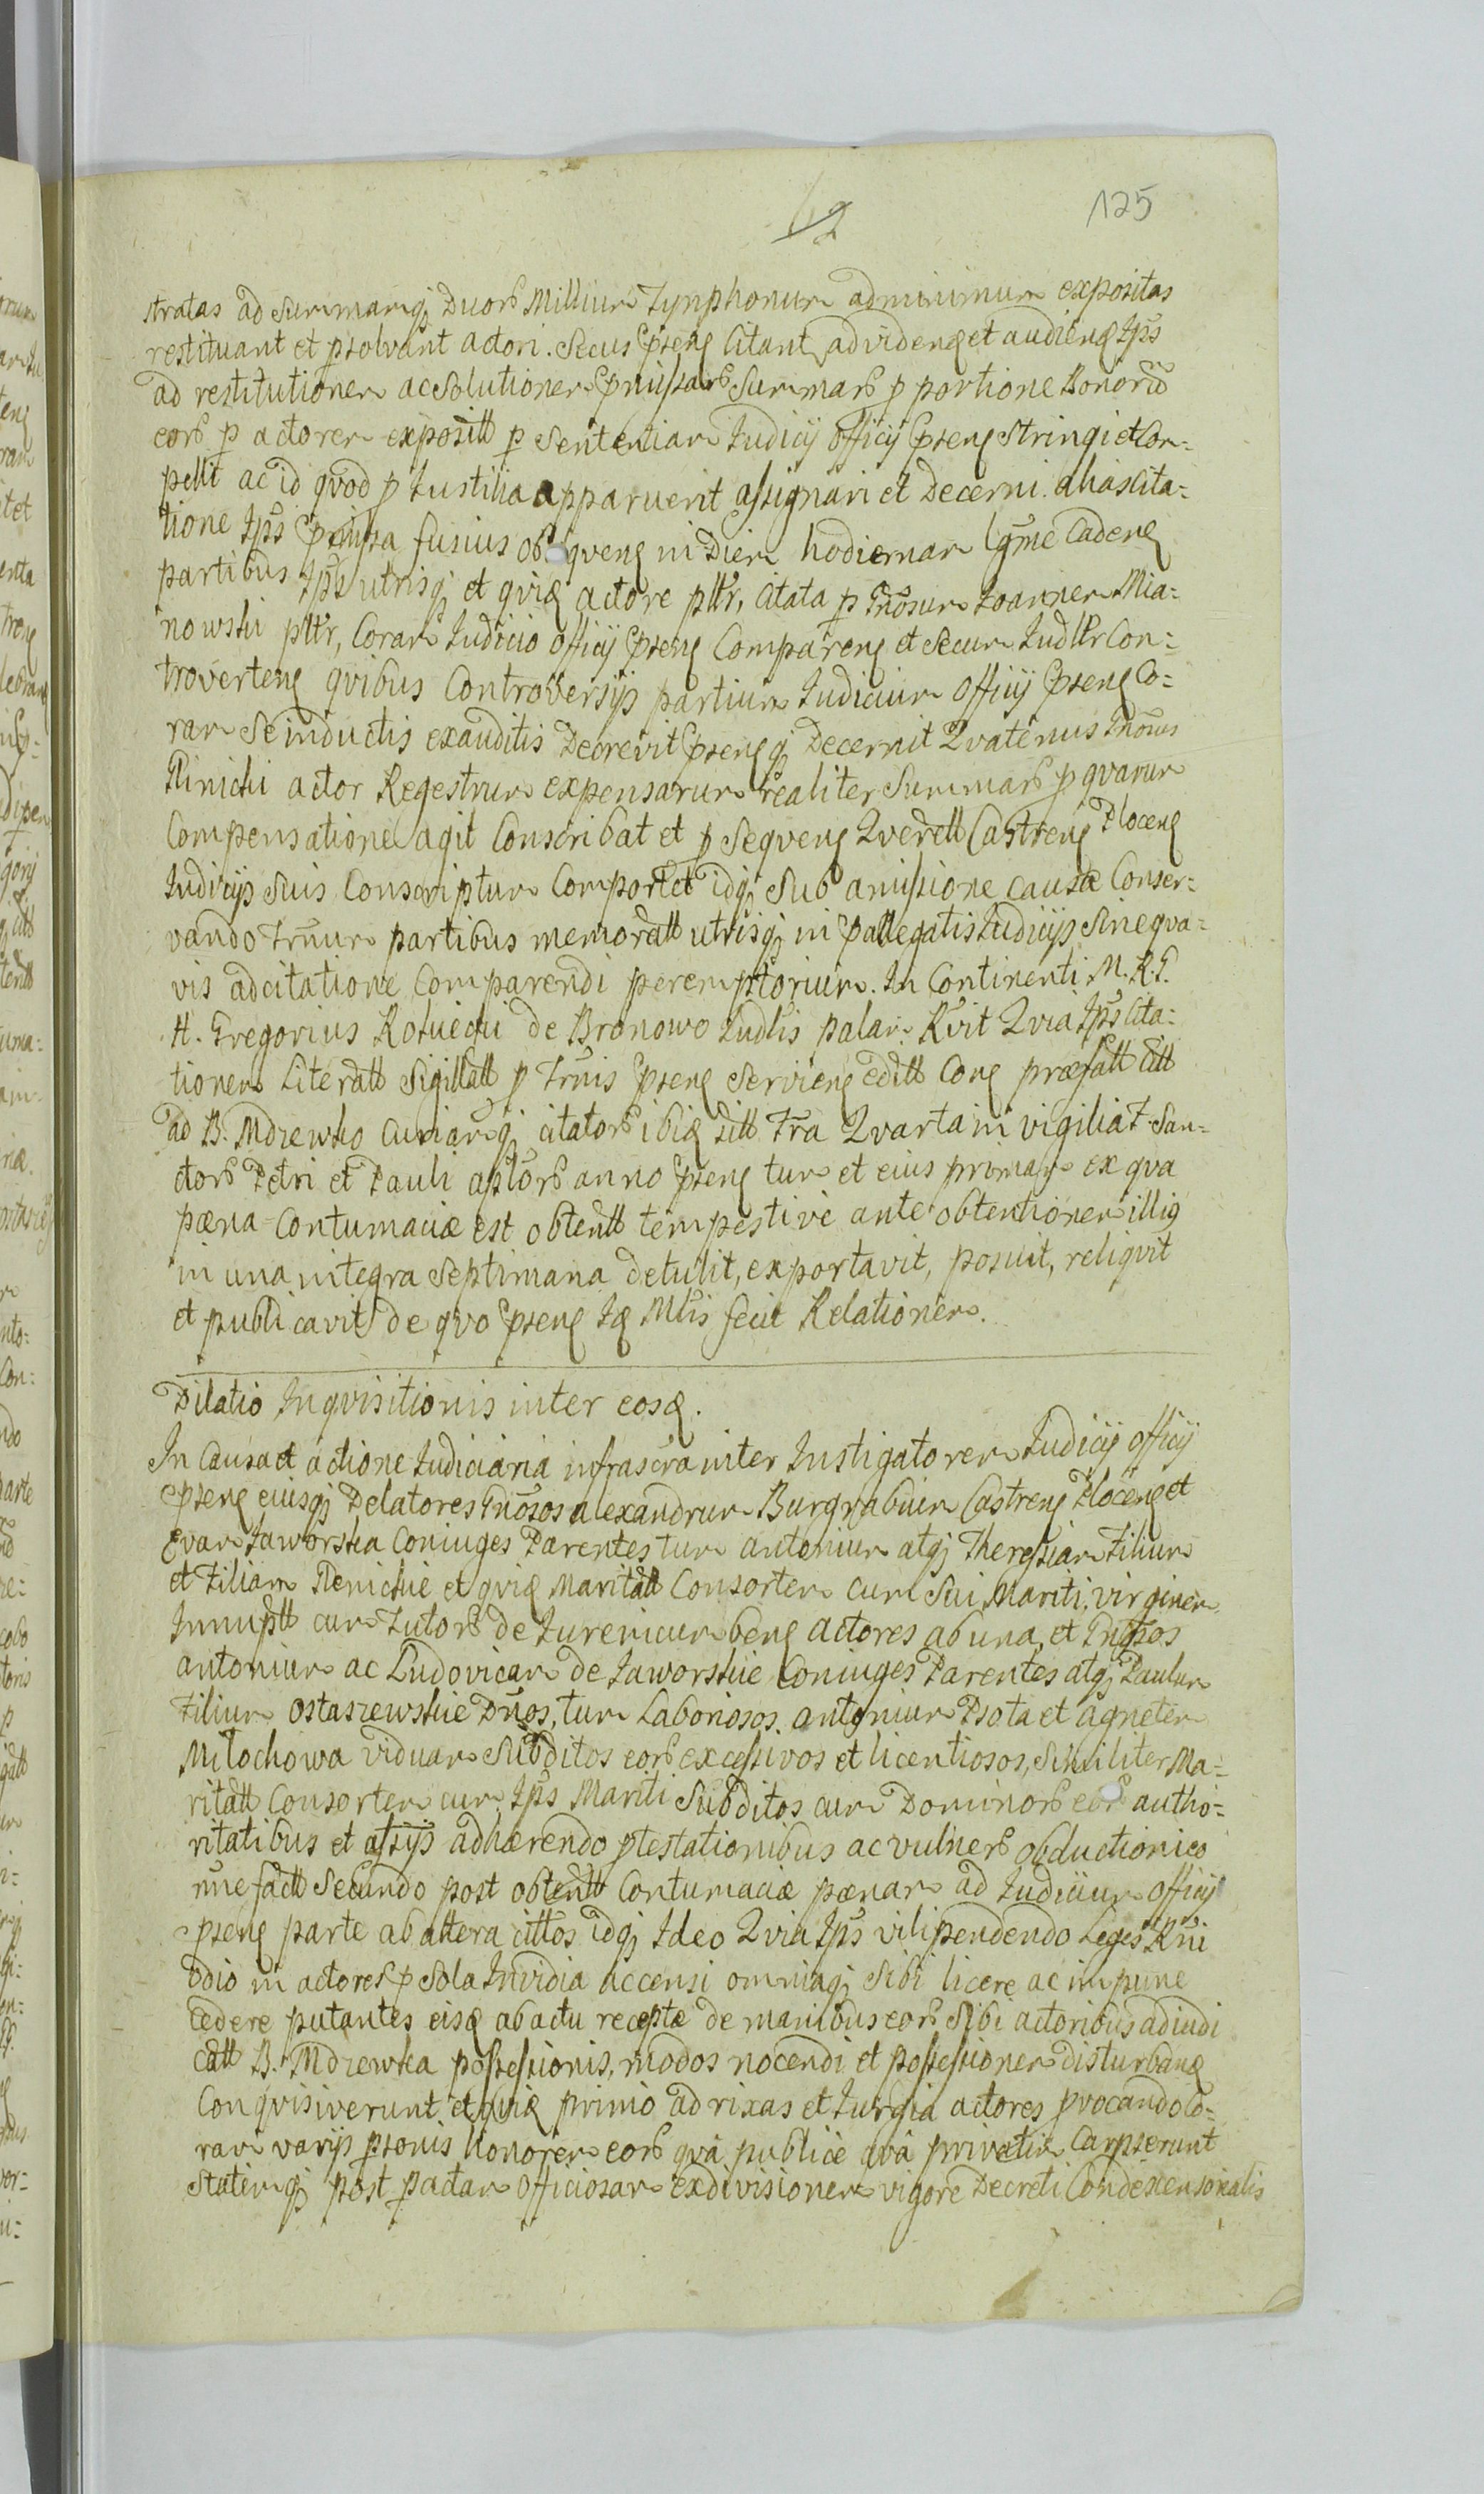 125
stratas ad summamq Duorū Millium Tynphonum ad minimum expositas
restituant et psolvant actori. Secus Epseng Citant ad videng et audieng Ips
ad restitutionem ac Solutionem Epmissarū Summarū p portione Bonorū
eorū p actorem expositt p Sententiam Judicij officij Epseng Stringi et Com=
pelli ac id qvod p Justitia apparuerit assignari et Decerni. alias Cita=
tione Ips Epmissa fusius qveng in Diem hodiernam Lgme Cadeng
partibus Ips utrisq et qviq actore pltr, Citata p Gnosum Joannem Mia=
nowski pltr, Coram Judicio officij Epseng Compareng et Secum Judltr Con=
troverteng qvibus Controversijs partium Judicium Officij Epseng Co=
ram Se inductis exauditis Decrevit Epseng q Decernit Qvatenus Gnosus
actor Regestrum expensarum realiter Summarū p qvarum
Compensatione agit Conscribat et p Seqveng Qverell Castreng Ploceng
Judicijs Suis Conscriptum Comportet idq Sub amissione causæ Conser=
vando Trnum partibus memoratt utrisq in Epallegatis Judicijs Sine qva=
vis adcitatione Comparendi peremptorium. In Continenti M. R. G.
H. Gregorius de Bronowo Judlis palam Rvit Qvia Ips Cita=
tionem Literatt Sigillatt p Trnis Epseng Servieng editt Cong præfatt Citt
ad B. Mdzewko Curiamq citatorū ibiq sitt Fra Qvarta in vigilia F. San=
ctorū Petri et Pauli aplorū anno Epseng tum et eius primam ex qva
pæna Contumaciæ est obtentt tempestive ante obtentionem illig
in una integra Septimana detulit, exportavit, posuit, reliqvit
et publicavit de qvo Epseng Iq Mlis fecit Relationem.
Dilatio Inqvisitionis inter eosq.
In Causa et actione Judiciaria infrascra inter Instigatorem Judicij officij
Epseng eiusq Delatores Gnosos alexandrum Burgrabium Castreng Ploceng et
Evam Jaworska Coniuges Parentes tum antonium atq Theressiam Filium
et Filiam et qviq Maritatt Consortem cum Sui Mariti, virginem
Innuptt cum Tutorū de Jure incumbeng actores ab una, et Gnosos
antonium ac Ludovicam de Jaworskie Coniuges Parentes atq Paulum
Filium Ostaszewskie Dnos, tum Laboriosos antonium Psota et agnetem
Milochowa viduam Subditos eorū excessivos et licentiosos, Similiter Ma=
ritatt Consortem cum Ips Mariti Subditos cum Dominorū eorū autho=
ritatibus et assijs adhærendo ptestationibus ac vulnerū obductioni eo
rne factt Secundo post obtentt Contumaciæ pænam ad Judicium officij
Epseng parte ab altera cittos idq Ideo Qvia Ips vilipendendo Leges Rni
odio in actores p Sola Invidia accensi omniaq Sibi licere ac impune
Cedere putantes eisq ab actu receptæ de manibus eorū Sibi actoribus adiudi
catt B. Mdzewka possessionis, modos nocendi et possessionem disturbanq
Conqvisiverunt et qviq primo ad rixas et Jurgia actores pvocando Co=
ram varijs psonis honorem eorū qva publice qva privatim Carpserunt
Statimq post pactam officiosam exdivisionem vigore Decreti Condescensorialis